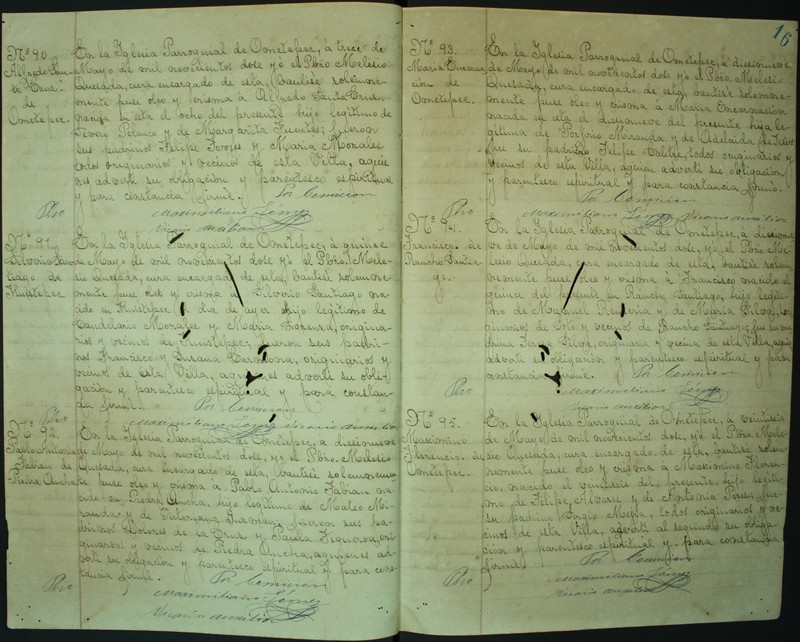 Nº 90.
Alfredo San-
ta Cruz.
de
Ometepec.
En la Iglesia Parroquial de Ometepec, á trece de
Mayo de mil novecientos dose yó el Pbro. Melesio
Quesada, cura encargado de ella, bautisé solemne-
mente puse oleo y crisma á Alfredo Santa Cruz,
nacido en esta el ocho del presente, hijo legítimo de
Severo Polanco y de Margarita Fuentes: fueron
sus padrinos Felipe y Maria Morales
todos originarios y vecinos de esta Villa, aquie-
nes advertí su obligacion y parentesco espiritual
y para constancia firmé.
Por Comicion
Pbro Maximiliano Gómez
Vicario auxiliar
Nº 91.
Silverio San-
tiago de
Huistepec
En la Iglesia Parroquial de Ometepec, á quince
de Mayo de mil novecientos dose yó el Pbro. Mele-
sio Quesada, cura encargado de ella, bautisé solemne-
mente puse oleo y crisma á Silverio Santiago na-
cido en Huistepec el dia de ayer hijo legitimo de
Candelario Morales y Maria Lorenza, origina-
rios y vecinos de Huistepec, fueron sus padri-
nos Francisco y Susana originarios y
vecinos de esta Villa, aquienes advertí su obli-
gacion y parentesco espiritual y para constan-
cia firmé.
Por Comicion
Pbro Maximiliano Gómez Vicario auxiliar
Nº 92.
Pablo Antonio
Fabian de
Piedra Ancha
En la Iglesia Parroquial de Ometepec, a diesinueve
de Mayo de mil novecientos dose, yó el Pbro. Melesio
Quesada, cura encargado de ella, bautisé solemnemen-
te puse oleo y crisma á Pablo Antonio Fabian na-
cido en Piedra Ancha, hijo legitimo de Mateo Mi-
randa y de Victoriana fueron sus pa-
drinos Dolores de la Cruz y Figueroa, ori-
ginarios y vecinos de Piedra Ancha, aquienes ad-
vertí su obligacion y parentesco espiritual y para cons-
tancia firmé.
Por Comicion
Pbro Maximiliano Gómez
Vicario auxiliar
16
Nº 93.
Maria Encarna-
cion de
Ometepec.
En la Iglesia Parroquial de Ometepec, á diesinueve
de Mayo de mil novecientos dose yó el Pbro. Melesio
Quesada, cura encargado de ella, bautisé solemne-
mente puse oleo y crisma á Maria Encarnacion
nacida en esta el diesinueve del presente hija le-
gitima de Porfirio Miranda y de Adelaida
fue su padrino Felipe todos originarios y
vecinos de esta Villa, aquien advertí su obligacion
y parentesco espiritual y para constancia firmé.
Por Comicion
Pbro Maximiliano Gómez Vicario auxiliar
Nº 94.
Francisco de
Rancho Santia-
go.
En la Iglesia Parroquial de Ometepec, á diesinue-
ve de Mayo de mil novecientos dose, yó el Pbro Me-
lesio Quesada, cura encargado de ella, bautisé solem-
nemente puse oleo y crisma á Francisco nacido el
quince del presente en Rancho Santiago, hijo legiti-
mo de Manuel y de Maria Silva, ori-
ginarios de y vecinos de Rancho Santiago, fue su ma-
drina Silva, originaria y vecina de esta Villa, aquien
advertí su obligacion y parentesco espiritual y para
constancia firmé.
Por Comicion
Pbro Maximiliano Gómez
Vicario auxiliar
Nº 95.
Maximino
Florencio de
Ometepec.
En la Iglesia Parroquial de Ometepec, á veintiseis
de Mayo de mil novecientos dose, yó el Pbro. Mele-
sio Quesada, cura encargado de ella, bautisé solem-
nemente puse oleo y crisma á Maximino Floren-
cio, nacido el veintiseis del presente, hijo legiti-
mo de Felipe Alvarez y de Antonia Perez: fue
su padrino Sergio Mejia, todos originarios y ve-
cinos de esta Villa, advertí al segundo su obliga-
cion y parentesco espiritual y para constancia
firmé.
Por Comicion
Pbro Maximiliano Gómez
Vicario auxiliar